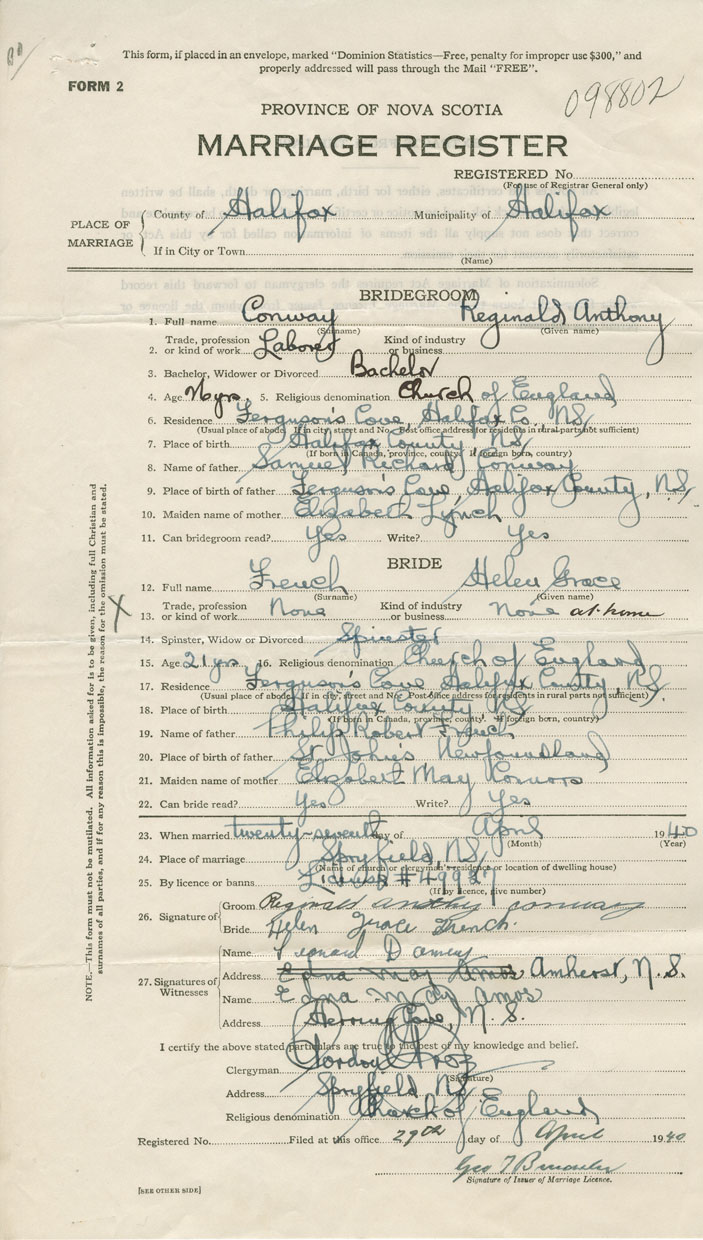 This form, if placed in an envelope, marked "Dominion Statistics—Free, penalty for improper use $300," and
properly addressed will pass through the Mail "FREE".
FORM 2
098802
PROVINCE OF NOVA SCOTIA
MARRIAGE REGISTER
REGISTERED No.
(For use of Registrar General only)
PLACE OF MARRIAGE
County of Halifax Municipality of Halifax
If in City or Town
(Name)
BRIDEGROOM
1. Full name Conway Reginald Anthony
(Surname) (Given name)
Trade, profession Kind of industry
2. or kind of work Laborer or business
3. Bachelor, Widower or Divorced Bachelor
4. Age yrs. 5. Religious denomination Church of England
6. Residence Ferguson's Cove, Halifax Co. NS
(Usual place of abode. If in city, street and No. Post office address for residents in rural parts not sufficient)
7. Place of birth Halifax County NS
(If born in Canada, province, county; if foreign born, country)
8. Name of father Samuel Richard Conway
9. Place of birth of father Ferguson's Cove, Halifax County, NS
10. Maiden name of mother Elizabeth Lynch
11. Can bridegroom read? Yes Write? Yes
BRIDE
12. Full name French Helen Grace
(Surname) (Given name)
Trade, profession Kind of industry
X 13. or kind of work None or business None at home
14. Spinster, Widow or Divorced Spinster
15. Age 21 yrs. 16. Religious denomination Church of England
17. Residence Ferguson's Cove Halifax NS.
(Usual place of abode. If in city, street and No. Post office address for residents in rural parts not sufficient)
18. Place of birth Halifax County NS
(If born in Canada, province, county. If foreign born, country)
19. Name of father Philip Robert French
20. Place of birth of father St John's Newfoundland
21. Maiden name of mother Elizabert May Connors
22. Can bride read? Yes Write? Yes
23. When married twenty-seventh day of April 1940
(Month) (Year)
24. Place of marriage Spryfield, NS
(Name of church or clergyman's residence or location of dwelling house)
25. By licence or banns License
(If by licence, give number)
26. Signature of
Groom Reginald Anthony Conway
Bride Helen Grace French.
27. Signatures of Witnesses
Name Leonard D
Address Edna May Amos Amherst, N.S.
Name Edna May Amos
Address Herring Cove, N.S.
I certify the above stated particulars are true to the best of my knowledge and belief.
Clergyman Gordon
(Signature)
Address Spryfield NS
Religious denomination Church of England
Registered No. Filed at this office 29th day of April 1940
Geo T
Signature of Issuer of Marriage Licence.
[SEE OTHER SIDE]
NOTE.—This form must not be mutilated. All information asked for is to be given, including full Christian and
surnames of all parties, and if for any reason this is impossible, the reason for the omission must be stated.